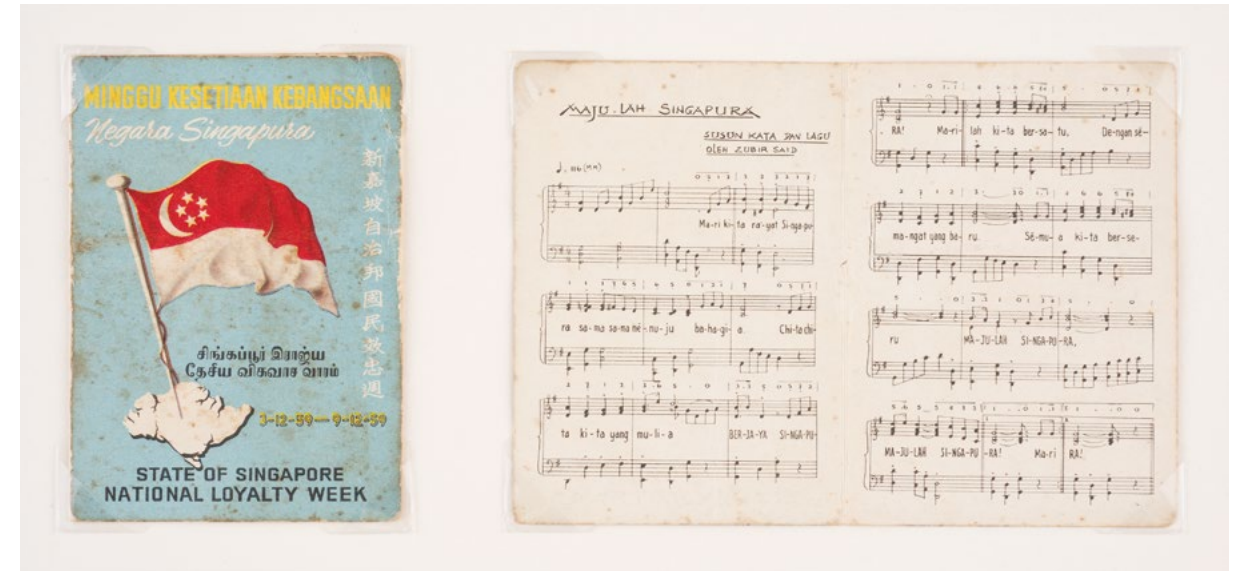 MINGGU KESETIAAN KEBANGSAAN
Negara Singapura
新嘉坡自治邦國民效忠週
சிங்கப்பூர் இராஜ்ய
தேசீய விசுவாச வாரம்
3-12-59—9-12-59
STATE OF SINGAPORE
NATIONAL LOYALTY WEEK
MAJU-LAH SINGAPURA
SUSUN KATA DAN LAGU
OLEH ZUBIR SAID
Ma-ri ki-ta ra-yat Si-nga-pu-
ra sa-ma sa-ma mĕ-nu-ju ba-ha-gi-a. Chi-ta chi-
ta ki-ta yang mu-li-a BER-JA-YA SI-NGA-PU-
RA! Ma-ri-lah ki-ta ber-sa-tu, De-ngan sĕ-
ma-ngat yang ba-ru. Sĕ-mu-a ki-ta ber-se-
ru MA-JU-LAH SI-NGA-PU-RA,
MA-JU-LAH SI-NGA-PU-RA! Ma-ri RA!